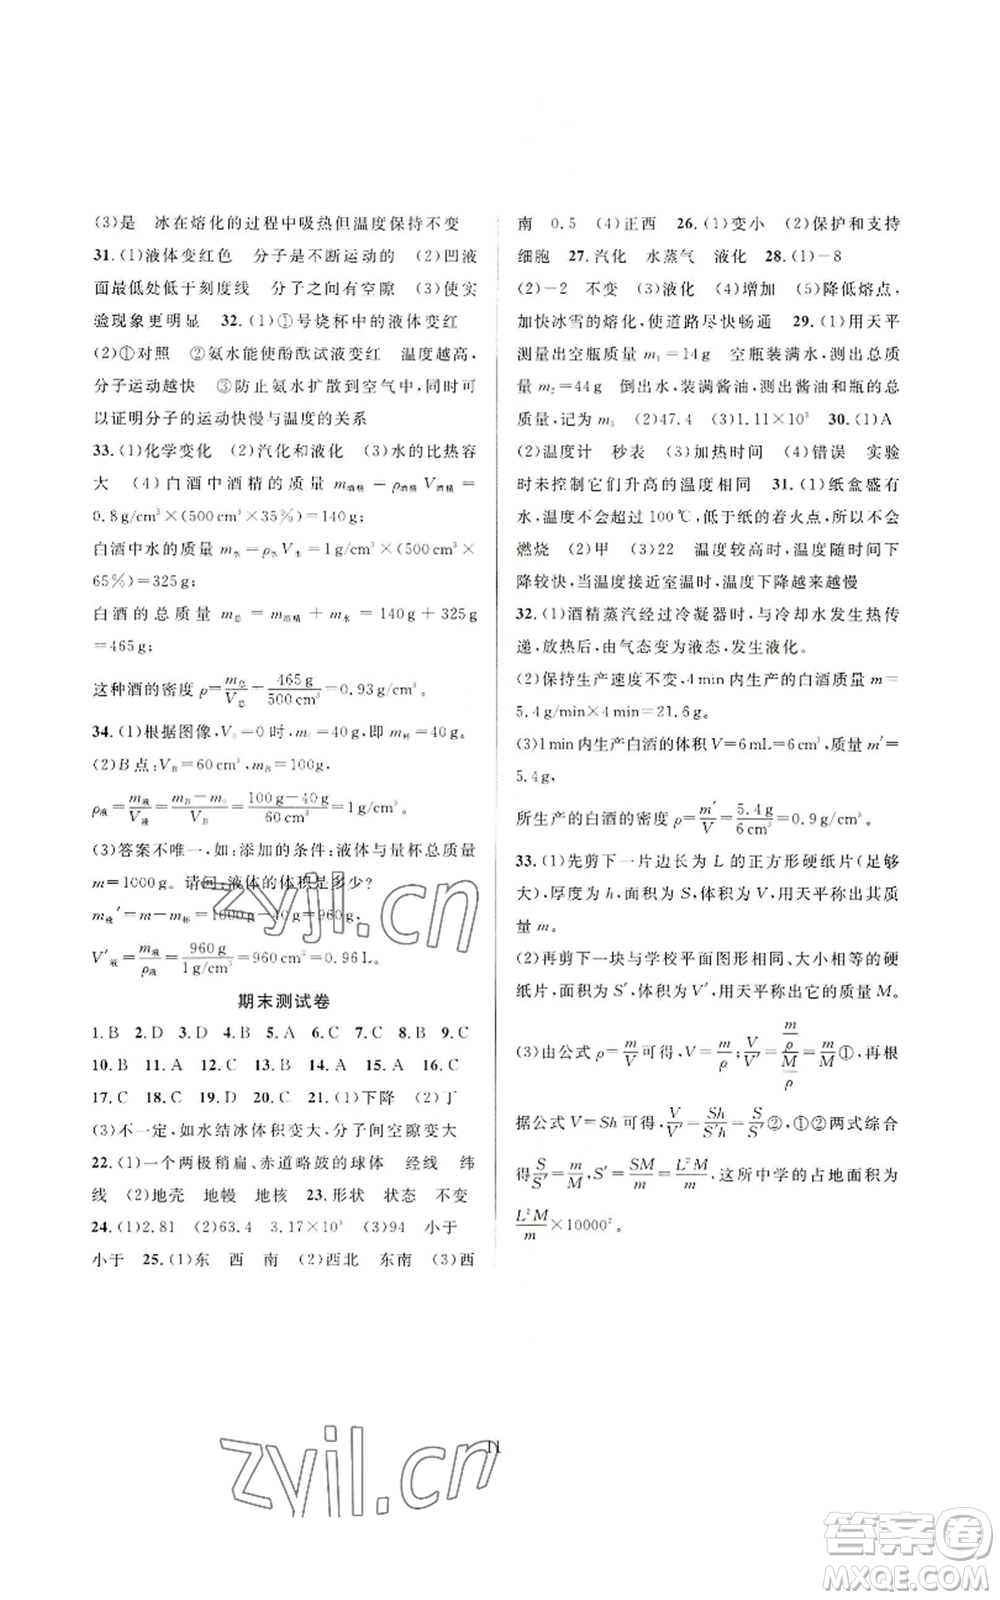 (3)是　冰在熔化的过程中吸热但温度保持不变
31.(1)液体变红色　分子是不断运动的　(2)凹液
面最低处低于刻度线　分子之间有空隙　(3)使实
验现象更明显　32.(1)①号烧杯中的液体变红
(2)①对照　②氨水能使酚酞试液变红　温度越高,
分子运动越快　③防止氨水扩散到空气中,同时可
以证明分子的运动快慢与温度的关系
33.(1)化学变化　(2)汽化和液化　(3)水的比热容
大　(4)白酒中酒精的质量 m酒精=ρ酒精V酒精=
0.8g/cm³×(500cm³×35%)=140g;
白酒中水的质量 m水=ρ水V水=1g/cm³×(500cm³×
65%)=325g;
白酒的总质量 m总=m酒精+m水=140g+325g
=465g;
这种酒的密度 ρ=m总/V总=465g/500cm³=0.93g/cm³。
34.(1)根据图像,V液=0时,m杯=40g,即m杯=40g。
(2)B点:VB=60cm³,mB=100g,
ρ液=m液/V液=(mB-m杯)/VB=(100g-40g)/60cm³=1g/cm³。
(3)答案不唯一,如:添加的条件:液体与量杯总质量
m=1000g。请问:液体的体积是多少?
m液′=m-m杯=1000g-40g=960g,
V′液=m液/ρ液=960g/(1g/cm³)=960cm³=0.96L。
期末测试卷
1.B　2.D　3.D　4.B　5.A　6.C　7.C　8.B　9.C
10.B　11.A　12.C　13.B　14.A　15.A　16.C
17.C　18.C　19.D　20.C　21.(1)下降　(2)丁
(3)不一定,如水结冰体积变大,分子间空隙变大
22.(1)一个两极稍扁、赤道略鼓的球体　经线　纬
线　(2)地壳　地幔　地核　23.形状　状态　不变
24.(1)2.81　(2)63.4　3.17×10³　(3)94　小于
小于　25.(1)东　西　南　(2)西北　东南　(3)西
南　0.5　(4)正西　26.(1)变小　(2)保护和支持
细胞　27.汽化　水蒸气　液化　28.(1)-8
(2)-2　不变　(3)液化　(4)增加　(5)降低熔点,
加快冰雪的熔化,使道路尽快畅通　29.(1)用天平
测量出空瓶质量m₁=14g　空瓶装满水,测出总质
量m₂=44g　倒出水,装满酱油,测出酱油和瓶的总
质量,记为m₃　(2)47.4　(3)1.11×10³　30.(1)A
(2)温度计　秒表　(3)加热时间　(4)错误　实验
时未控制它们升高的温度相同　31.(1)纸盒盛有
水,温度不会超过100℃,低于纸的着火点,所以不会
燃烧　(2)甲　(3)22　温度较高时,温度随时间下
降较快,当温度接近室温时,温度下降越来越慢
32.(1)酒精蒸汽经过冷凝器时,与冷却水发生热传
递,放热后,由气态变为液态,发生液化。
(2)保持生产速度不变,4min内生产的白酒质量m=
5.4g/min×4min=21.6g。
(3)1min内生产白酒的体积V=6mL=6cm³,质量m′=
5.4g,
所生产的白酒的密度ρ=m′/V=5.4g/6cm³=0.9g/cm³。
33.(1)先剪下一片边长为L的正方形硬纸片(足够
大),厚度为h,面积为S,体积为V,用天平称出其质
量m。
(2)再剪下一块与学校平面图形、大小相等的硬
纸片,面积为S′,体积为V′,用天平称出它的质量M。
(3)由公式ρ=m/V可得,V=m/ρ;V/V′=(m/ρ)/(M/ρ)=m/M①,再根
据公式V=Sh可得,V/V′=Sh/S′h=S/S′②①②两式综合
得S/S′=m/M,S′=SM/m=L²M/m,这所中学的占地面积为
L²M/m×10000²。
zyjl.cn
11
zyjl.cn
答案圈
MXQE.COM